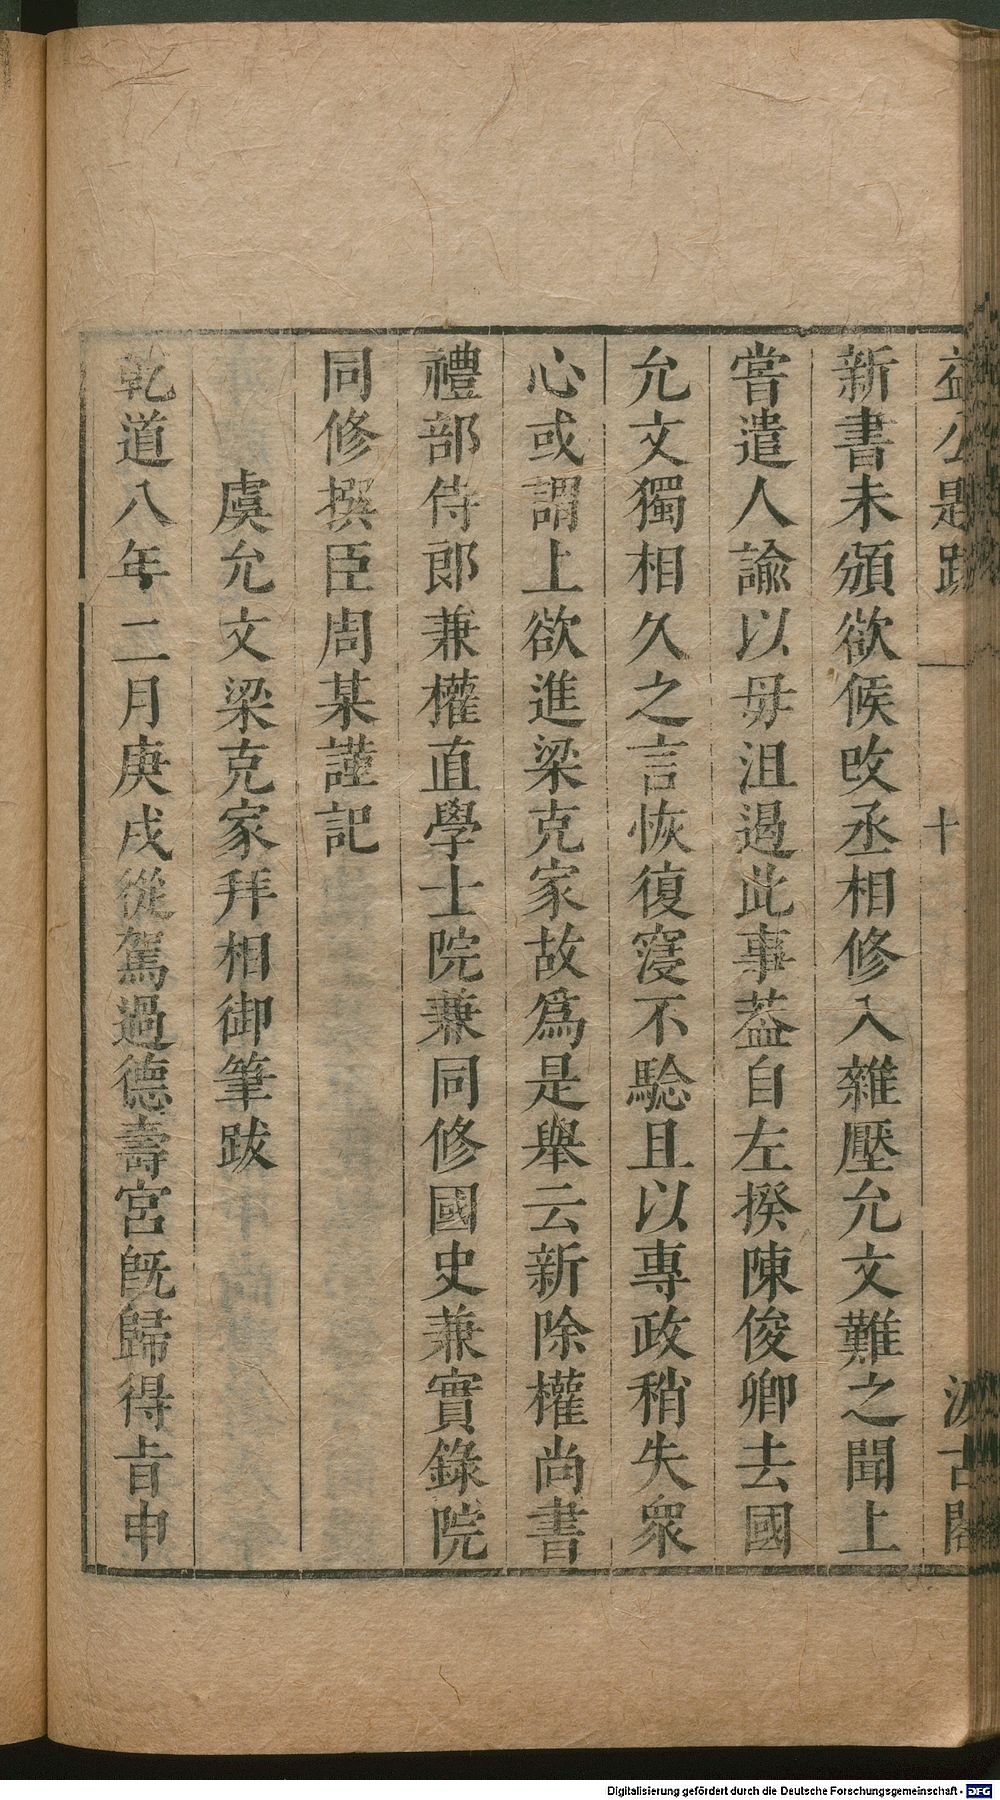 益公題跋 一 十 汲古閣
新書未頒欲候改丞相修入雜壓允文難之聞上
嘗遣人諭以毋沮遏此事葢自左揆陳俊卿去國
允文獨相久之言恢復寖不驗且以專政稍失衆
心或謂上欲進梁克家故爲是舉云新除權尚書
禮部侍郎兼權直學士院兼同修國史兼實錄院
同修撰臣周某謹記
虞允文梁克家拜相御筆跋
乾道八年二月庚戌從駕過德壽宮旣歸得㫖申
Digitalisierung gefördert durch die Deutsche Forschungsgemeinschaft - DFG